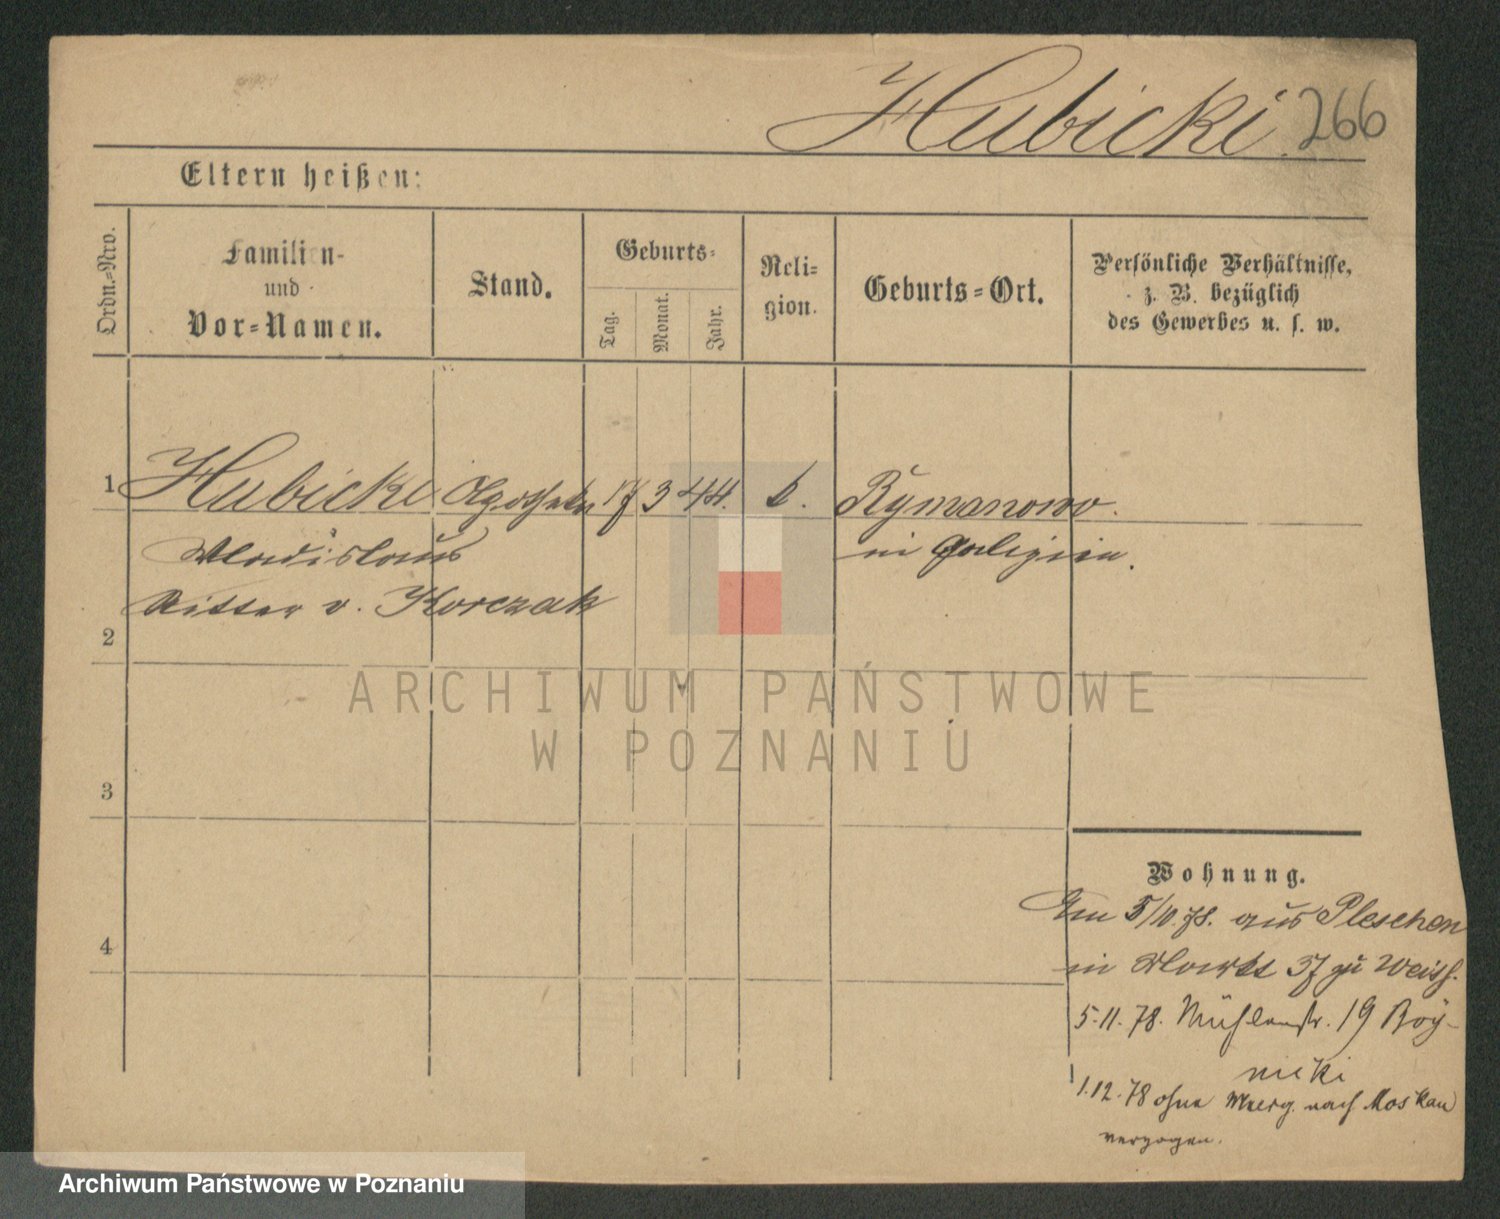 Hubicki 266
Eltern heißen:
Ordn.-Nro.
Familien-
und
Vor-Namen.
Stand.
Geburts-
Tag.
Monat.
Jahr.
Reli-
gion.
Geburts-Ort.
Persönliche Verhältnisse,
z. B. bezüglich
des Gewerbes u. s. w.
1 Hubicki Apotheker 17 3 44. k. Rymanowo.
Wladislaus in Galizien.
Ritter v. Korczak
2
ARCHIWUM PAŃSTWOWE
W POZNANIU
3
Wohnung.
Am 5/10.78. aus Pleschen
4
in Markt 37 zu Weiss.
5.11.78. Mühlenstr. 19 Roy-
nicki
1.12.78 ohne nach Moskau
verzogen.
Archiwum Państwowe w Poznaniu